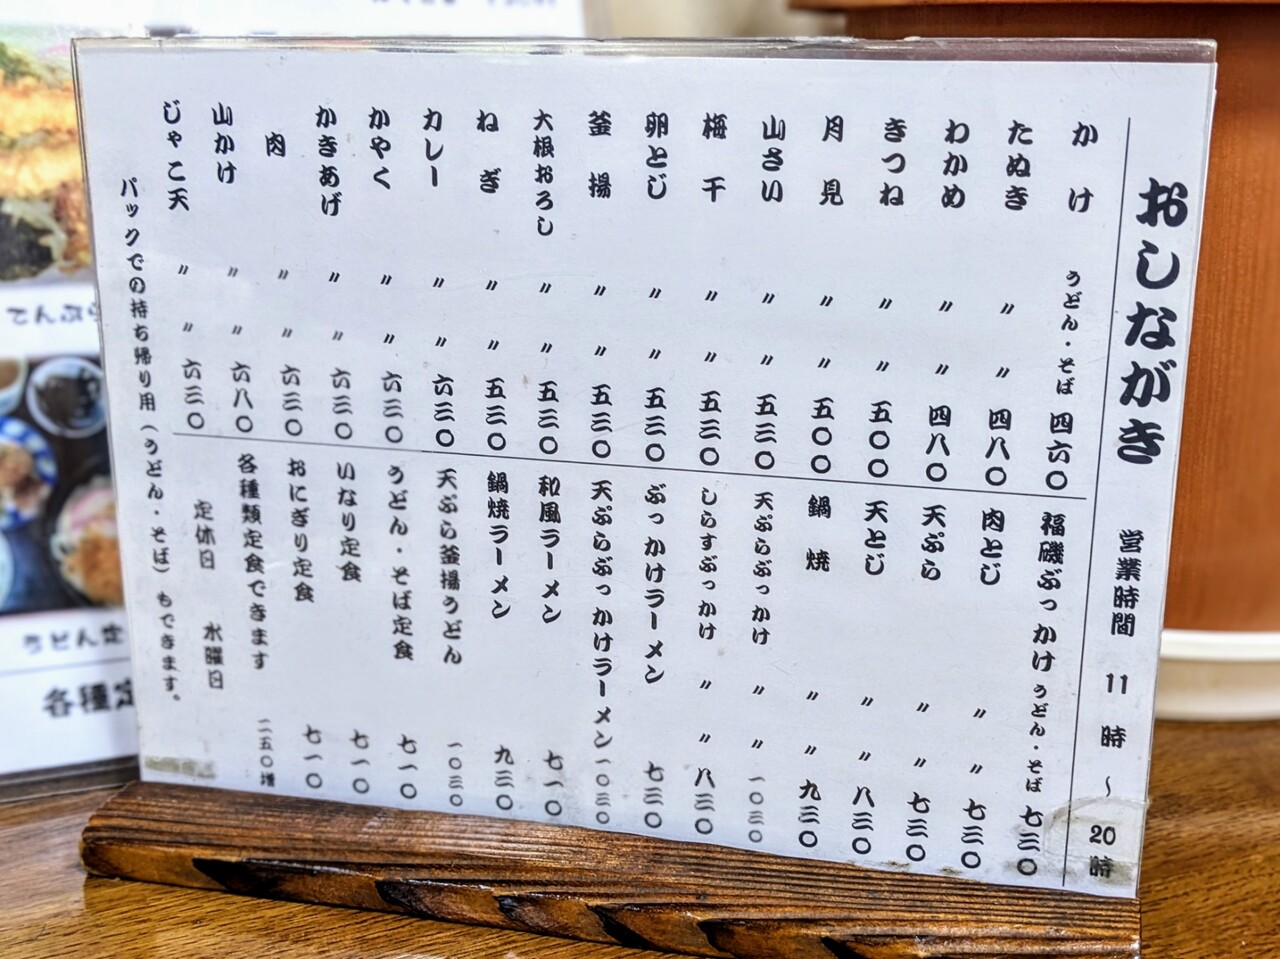 おしながき 営業時間 11時～20時
かけ うどん・そば 四六〇
たぬき 〃 〃 四八〇
わかめ 〃 〃 四八〇
きつね 〃 〃 五〇〇
月見 〃 〃 五〇〇
山さい 〃 〃 五三〇
梅干 〃 〃 五三〇
卵とじ 〃 〃 五三〇
釜揚 〃 〃 五三〇
大根おろし 〃 〃 五三〇
ねぎ 〃 〃 五三〇
カレー 〃 〃 六三〇
かやく 〃 〃 六三〇
かきあげ 〃 〃 六三〇
肉 〃 〃 六三〇
山かけ 〃 〃 六八〇
じゃこ天 〃 〃 六三〇
福磯ぶっかけ うどん・そば 七三〇
肉とじ 〃 〃 七三〇
天ぷら 〃 〃 七三〇
天とじ 〃 〃 八三〇
鍋焼 〃 〃 九三〇
天ぷらぶっかけ 〃 〃 一〇三〇
しらすぶっかけ 〃 〃 八三〇
ぶっかけラーメン 七三〇
天ぷらぶっかけラーメン 一〇三〇
和風ラーメン 七一〇
鍋焼ラーメン 九三〇
天ぷら釜揚うどん 一〇三〇
うどん・そば定食 七一〇
いなり定食 七一〇
おにぎり定食 七一〇
各種類定食できます 二五〇増
定休日 水曜日
パックでの持ち帰り用（うどん・そば）もできます。
てんぷら
うどん定
各種定